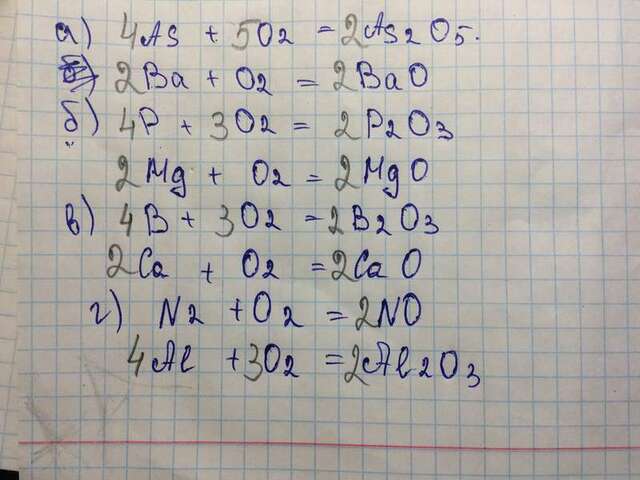 а) 4As + 5O2 = 2As2O5.
2Ba + O2 = 2BaO
б) 4P + 3O2 = 2P2O3
2Mg + O2 = 2MgO
в) 4B + 3O2 = 2B2O3
2Ca + O2 = 2CaO
г) N2 + O2 = 2NO
4Al + 3O2 = 2Al2O3